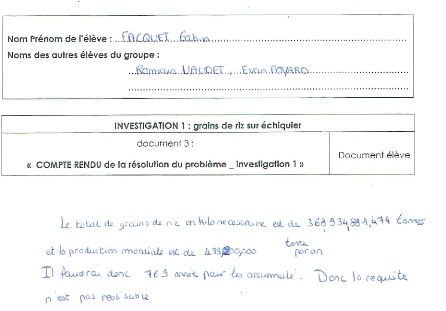 Nom Prénom de l'élève : FACQUET Gabin
Noms des autres élèves du groupe :
Romain VALIDET, Evan POYARD
INVESTIGATION 1 : grains de riz sur échiquier
document 3 :
« COMPTE RENDU de la résolution du problème _ investigation 1 »
Document élève
Le total de grains de riz en kilo necessaire est de 368,934,881,474 tonnes
et la production mondiale est de 479,200,000 tonne par an
Il faudrai donc 769 année pour les accumulé. Donc la requête
n'est pas realisable